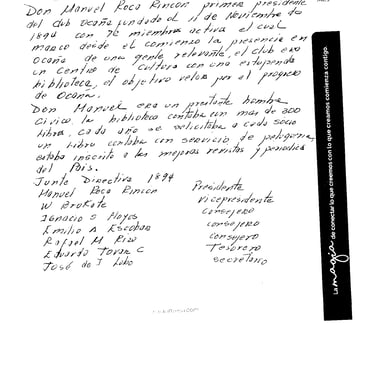 Don Manuel Roca Rincon primer presidente
del club Ocaña fundado el 11 de Noviembre de
1894 con 72 miembros activa el cual
marco desde el comienzo la presencia en
Ocaña de una gente relevante, el club era
un Centro de Cultura con una estupenda
biblioteca, el objetivo velar por el progreso
de Ocaña.
Don Manuel era un prestante hombre
Civico, la biblioteca contaba con mas de 300
Libros, cada año se solicitaba a cada socio
un Libro contaba con servicio de
estaba inscrito a las mejores revistas y periodicos
del Pais.
Junta Directiva 1894
Manuel Roca Rincon Presidente
W Brokate Vicepresidente
Ignacio S Hoyos Consejero
Emilio A Escobar consejero
Rafael M Rizo consejero
Eduardo Tovar C Tesorero
José de J Lobo secretario
La magia de conectar lo que creemos con lo que creamos comienza contigo.